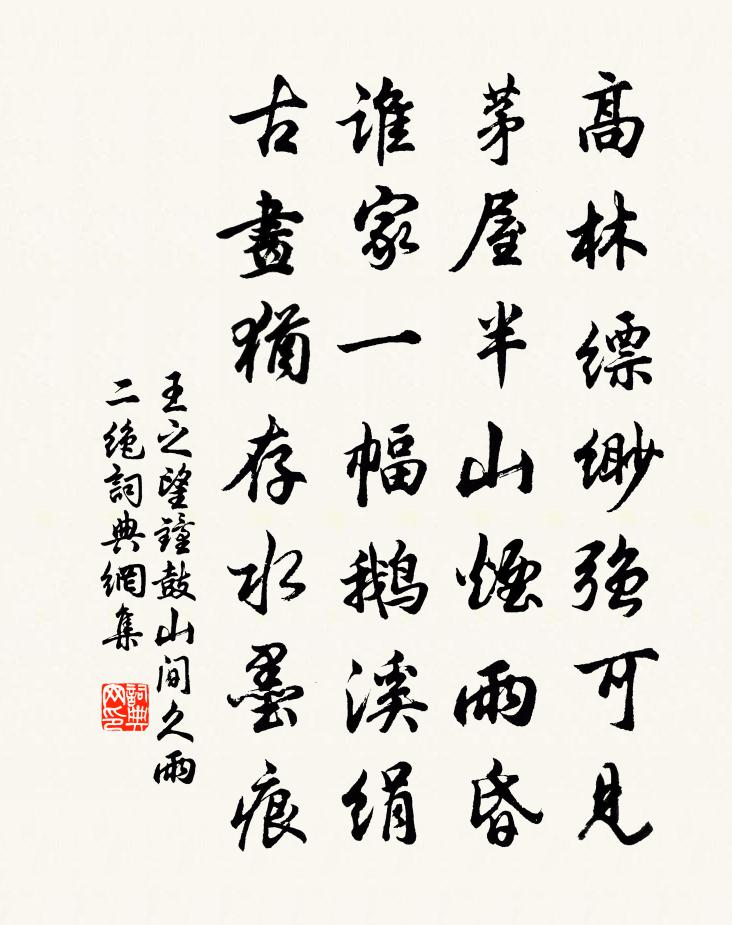 高林缥缈强可見
茅屋半山煙雨昏
谁家一幅鹅溪绢
古畫猶存水墨痕
王之望鐘鼓山间久雨
二绝詞典網集
詞典网印